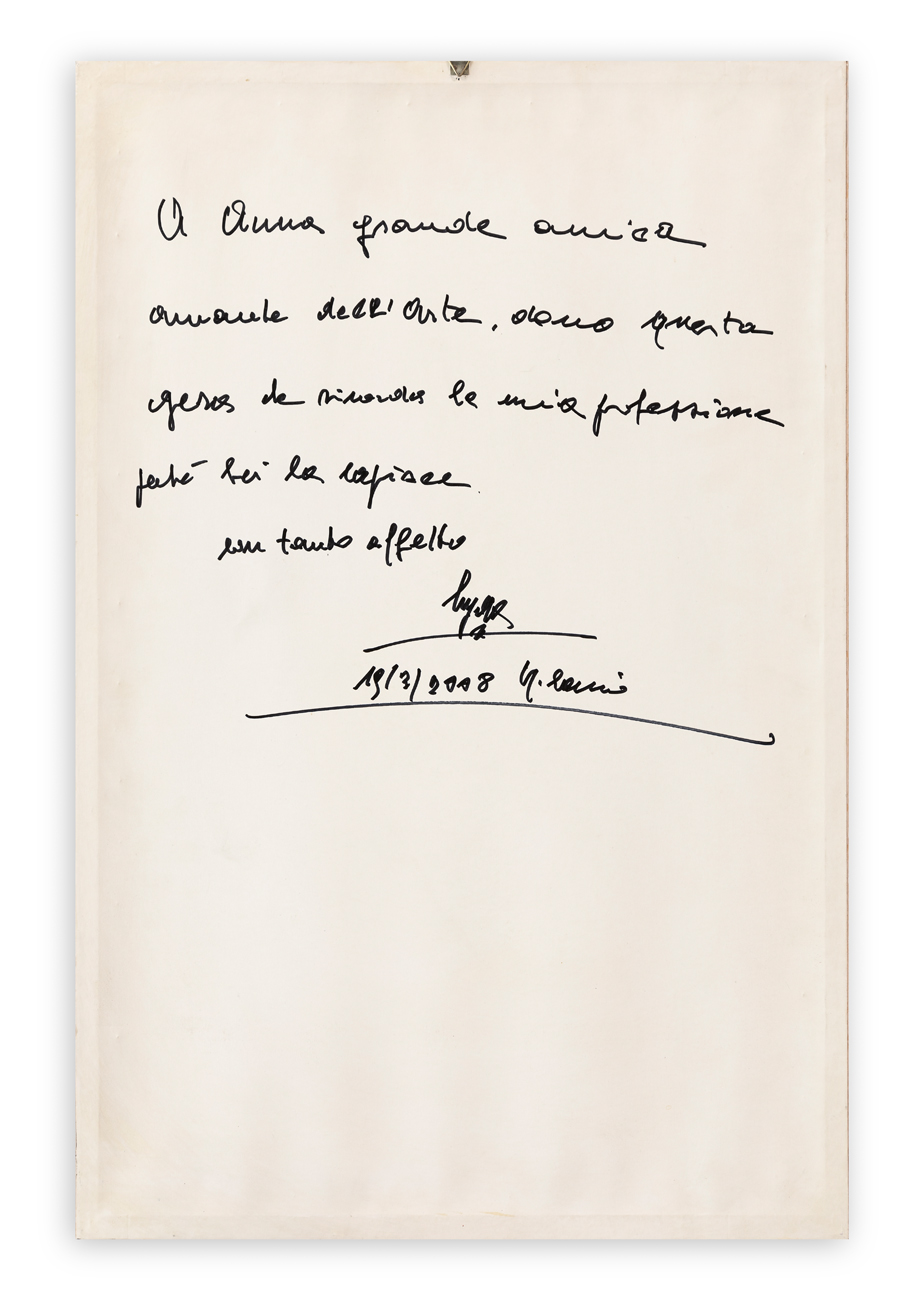 A Anna grande amica
amante dell'Arte, dono questa
che ricorda la mia professione
perché lei la capisce
con tanto affetto
19/3/2008 Milano